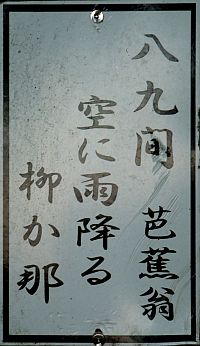 八九间 芭蕉翁
空に雨降る
柳か那